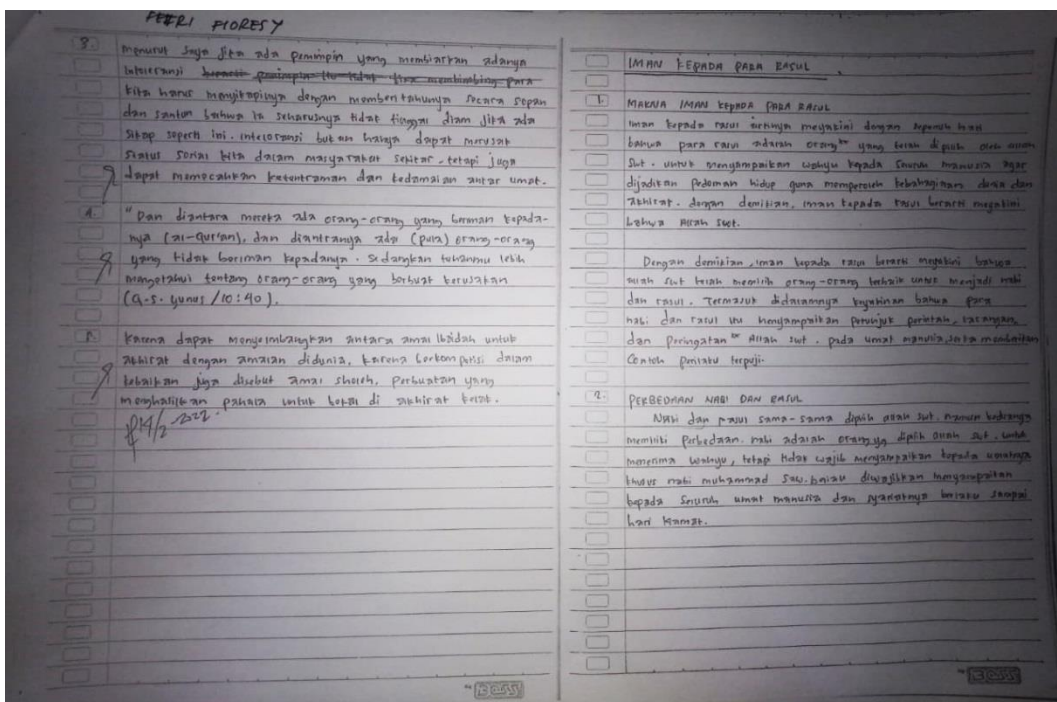 FEBRI FIORESY
3.
menurut saya jika ada pemimpin yang membiarkan adanya
intoleransi berarti pemimpin itu tidak bisa membimbing para
kita harus menyikapinya dengan memberitahunya secara sopan
dan santun bahwa ia seharusnya tidak tinggal diam jika ada
sikap seperti ini. intoleransi bukan hanya dapat merusak
status sosial kita dalam masyarakat sekitar, tetapi juga
dapat memecahkan ketentraman dan kedamaian antar umat.
4.
"Dan diantara mereka ada orang-orang yang beriman kepada-
nya (al-Qur'an), dan diantranya ada (pula) orang-orang
yang tidak beriman kepadanya. Sedangkan tuhanmu lebih
mengetahui tentang orang-orang yang berbuat kerusakan
(Q.S. Yunus /10:40).
5.
Karena dapat menyeimbangkan antara amal Ibaidah untuk
akhirat dengan amalan didunia, karena berkompetisi dalam
kebaikan juga disebut amal sholeh, perbuatan yang
menghasilkan pahala untuk bekal di akhirat kelak.
14/2-2022.
BOSS
IMAN KEPADA PARA RASUL.
1.
MAKNA IMAN KEPADA PARA RASUL
iman kepada rasul artinya meyakini dengan sepenuh hati
bahwa para rasul adalah orang² yang telah dipilih oleh allah
Swt. untuk menyampaikan wahyu kepada seluruh manusia agar
dijadikan pedoman hidup guna memperoleh kebahaginan dunia dan
akhirat. dengan demikian, iman kepada rasul berarti meyakini
bahwa Allah swt.
Dengan demikian, iman kepada rasul berarti meyakini bahwa
allah swt telah memilih orang-orang terbaik untuk menjadi nabi
dan rasul. Termasuk didalamnya keyakinan bahwa para
nabi dan rasul itu menyampaikan petunjuk perintah, larangan,
dan peringatan² Allah swt. pada umat manusia, serta memberikan
Contoh perilaku terpuji.
2.
PERBEDAAN NABI DAN RASUL
Nabi dan rasul sama-sama dipilih allah swt. namun keduanya
memiliki perbedaan. nabi adalah orang yg dipilih allah swt. untuk
menerima wahyu, tetapi tidak wajib menyampaikan kepada umatnya
khusus nabi muhammad saw. beliau diwajibkan menyampaikan
kepada seluruh umat manusia dan syariatnya berlaku sampai
hari kiamat.
BOSS